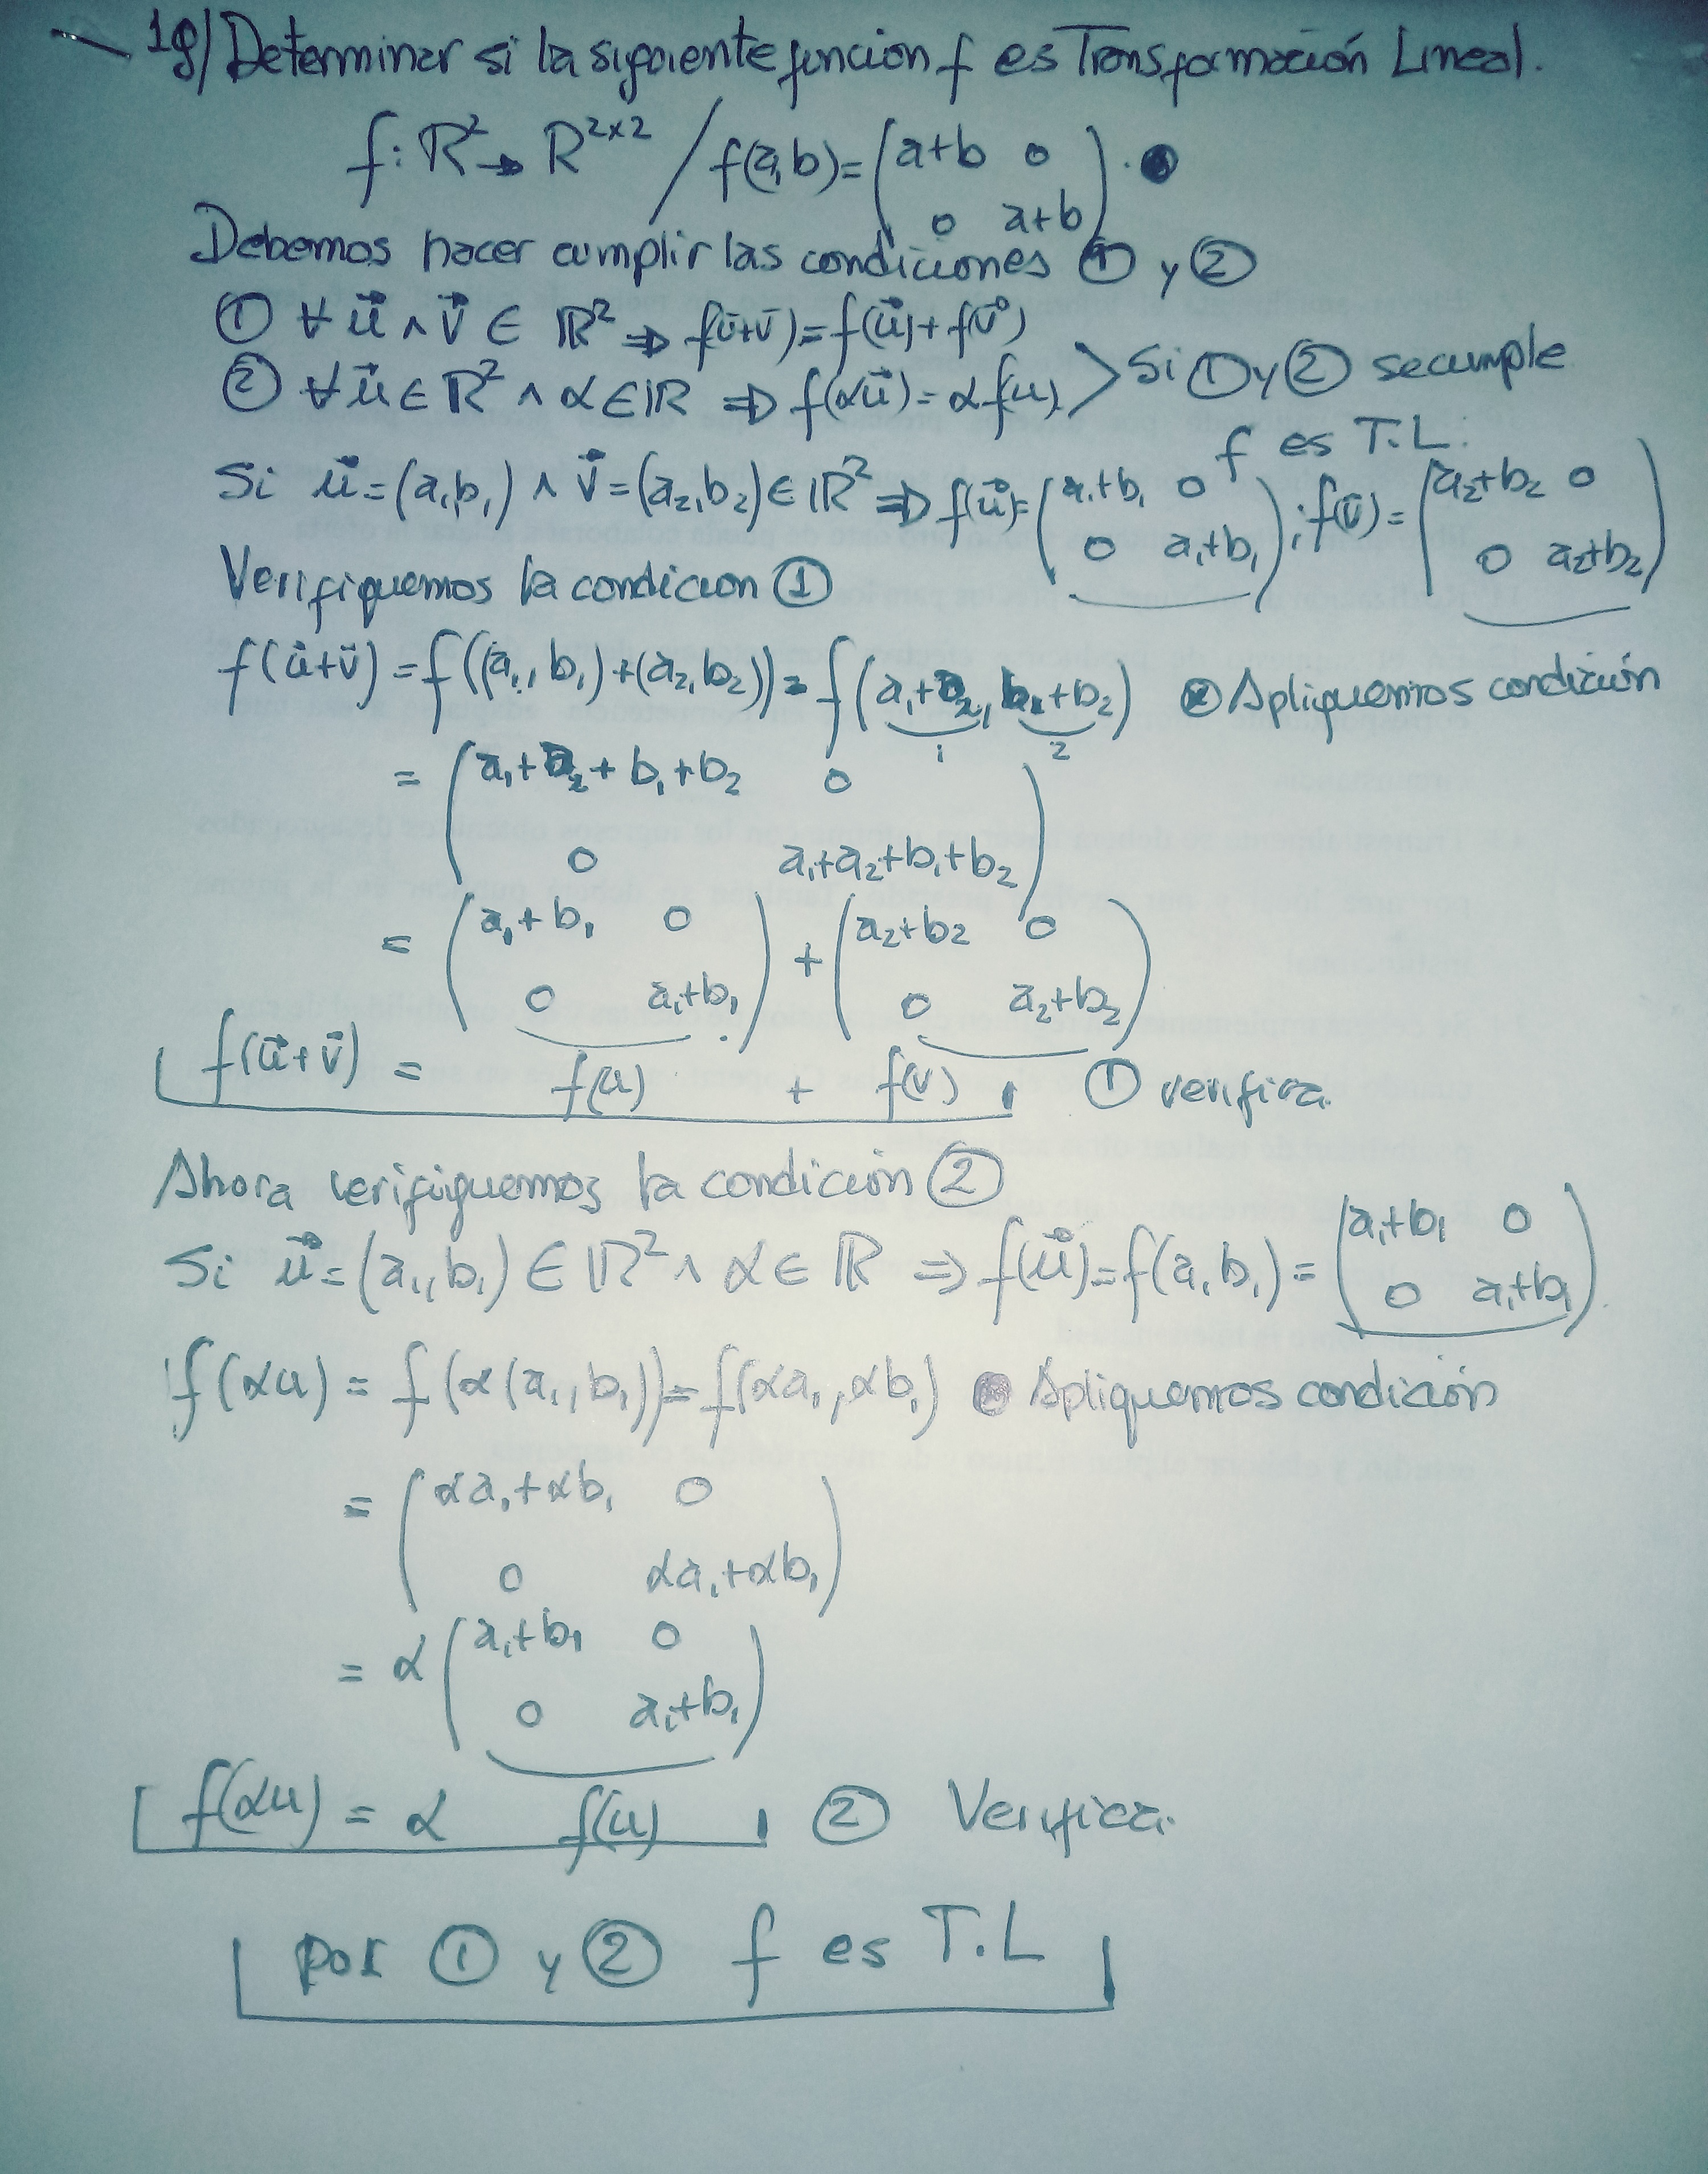 1g) Determinar si la siguiente función f es Transformación Lineal.
f: ℝ² → ℝ²ˣ² / f(a,b) = (a+b 0
0 a+b).
Debemos hacer cumplir las condiciones ① y ②
① ∀ u⃗ ∧ v⃗ ∈ ℝ² ⇒ f(ū+v̄) = f(u⃗) + f(v⃗)
② ∀ u⃗ ∈ ℝ² ∧ α ∈ ℝ ⇒ f(αu⃗) = α f(u). > Si ① y ② se cumple
f es T.L.
Si u⃗ = (a₁b₁) ∧ v⃗ = (a₂,b₂) ∈ ℝ² ⇒ f(u⃗) = (a₁+b₁ 0 ; f(v̄) = (a₂+b₂ 0
0 a₁+b₁) 0 a₂+b₂)
Verifiquemos la condicion ①
f(u⃗+v⃗) = f((a₁,b₁)+(a₂,b₂)) = f(a₁+a₂, b₁+b₂) Apliquemos condición
1 2
= (a₁+a₂+b₁+b₂ 0
0 a₁+a₂+b₁+b₂)
= (a₁+b₁ 0 + (a₂+b₂ 0
0 a₁+b₁) 0 a₂+b₂)
f(u⃗+v⃗) = f(u) + f(v) ① verifica.
Ahora verifiquemos la condición ②
Si u⃗ = (a₁,b₁) ∈ ℝ² ∧ α ∈ ℝ ⇒ f(u⃗) = f(a₁b₁) = (a₁+b₁ 0
0 a₁+b₁)
f(αu) = f(α(a₁,b₁)) = f(αa₁,αb₁) Apliquemos condición
= (αa₁+αb₁ 0
0 αa₁+αb₁)
= α (a₁+b₁ 0
0 a₁+b₁)
f(αu) = α f(u) ② Verifica.
por ① y ② f es T.L